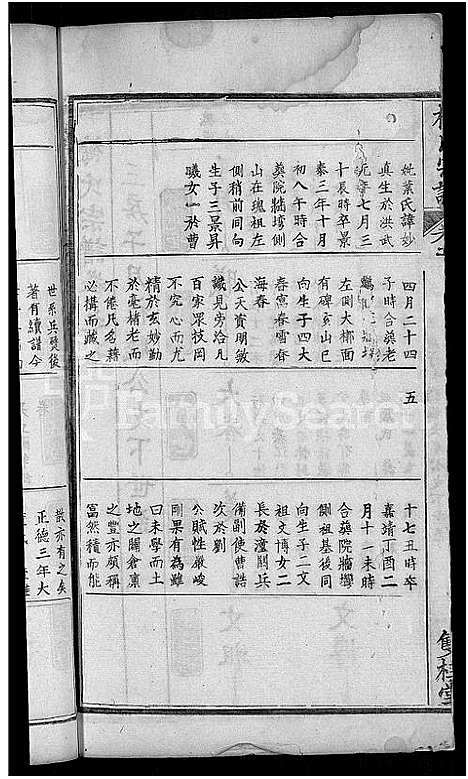 妣葉氏諱妙
真生於洪武
年七月三
十辰時卒景
泰三年十月
初八午時合
葬院牆塆側
山在瑰祖左
側稍前同向
生子三景昇
曦女一於曹
四月二十四
子時合葬老
左側大塝面
有碑亥山巳
向生子四大
春憲春雲春
海春
公天資明敏
識見旁洽凡
百家眾技罔
不究心而尤
精於玄妙勤
於毫楮老而
不倦凡名藉
必搆而藏之
五
十七丑時卒
嘉靖丁酉二
月十一未時
合葬院牆塆
側祖基後同
向生子二文
祖文博女二
長於潼關兵
備副使曹誥
次於劉
公賦性嚴峻
剛果有為雖
曰未學而土
地之闢倉廩
之豐亦頗稱
富然積而能
世系兵燹後
著有續譜今
裝亦有之矣
正德三年大
雙桂堂
FamilySearch